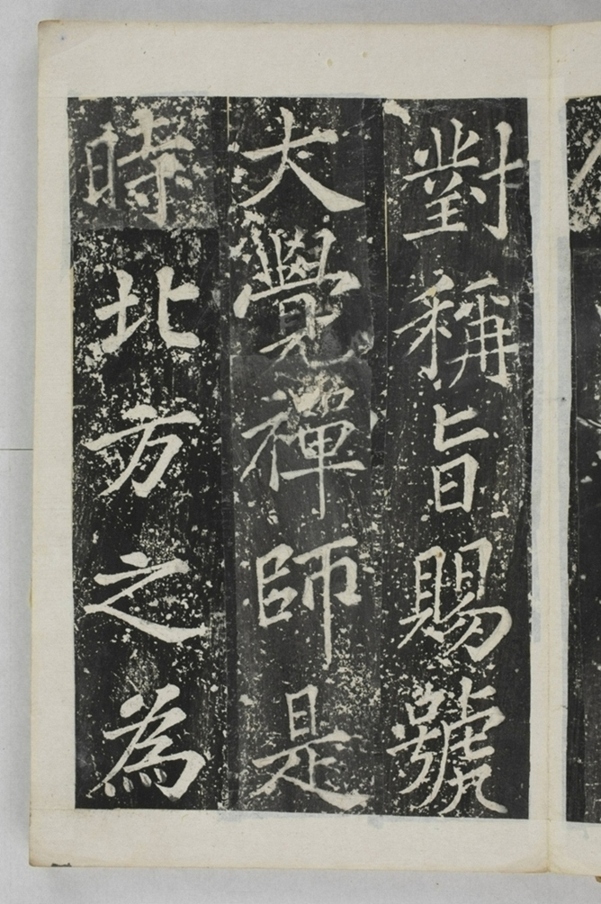 對稱旨賜號
大覺禪師是
時北方之為